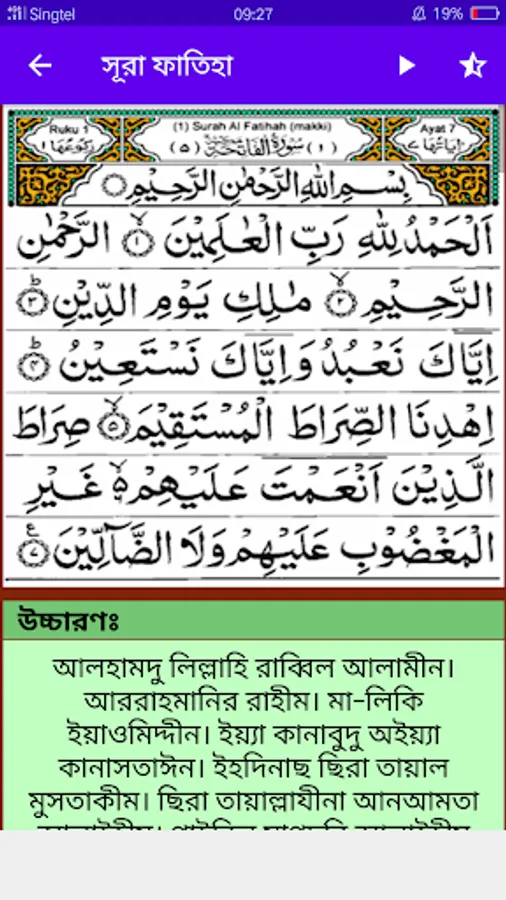 Singtel 09:27 19%
সূরা ফাতিহা
Ruku 1 (1) Surah Al Fatihah (makki) Ayat 7
رکوعها ١ (١) سورة الفاتحة (٥) اياتها ٧
بِسْمِ اللهِ الرَّحْمٰنِ الرَّحِيْمِ
اَلْحَمْدُ لِلّٰهِ رَبِّ الْعٰلَمِيْنَ ۙ﴿١﴾ الرَّحْمٰنِ
الرَّحِيْمِ ۙ﴿٢﴾ مٰلِكِ يَوْمِ الدِّيْنِ ؕ﴿٣﴾
اِيَّاكَ نَعْبُدُ وَاِيَّاكَ نَسْتَعِيْنُ ؕ﴿٤﴾
اِهْدِنَا الصِّرَاطَ الْمُسْتَقِيْمَ ۙ﴿٥﴾ صِرَاطَ
الَّذِيْنَ اَنْعَمْتَ عَلَيْهِمْ ۙ۬ غَيْرِ
الْمَغْضُوْبِ عَلَيْهِمْ وَلَا الضَّآلِّيْنَ ﴿٧﴾
উচ্চারণঃ
আলহামদু লিল্লাহি রাব্বিল আলামীন।
আররাহমানির রাহীম। মা-লিকি
ইয়াওমিদ্দীন। ইয়্যা কানাবুদু অইয়্যা
কানাসতাঈন। ইহদিনাছ ছিরা তায়াল
মুসতাকীম। ছিরা তায়াল্লাযীনা আনআমতা